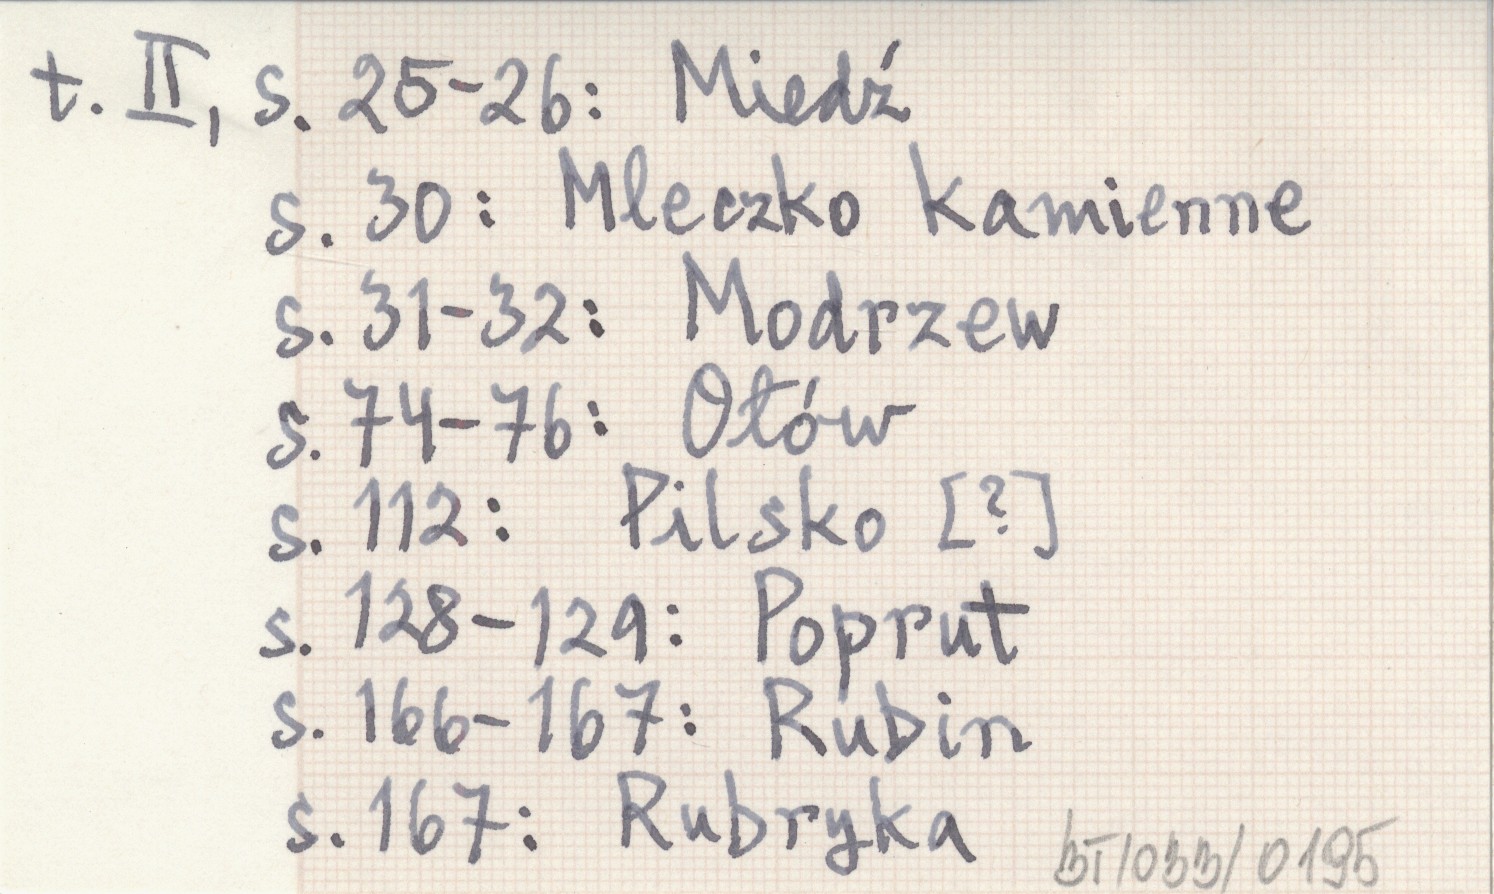 t. II, s. 25-26: Miedź
s. 30: Mleczko kamienne
s. 31-32: Modrzew
s. 74-76: Ołów
s. 112: Pilsko [?]
s. 128-129: Poprut
s. 166-167: Rubin
s. 167: Rubryka
BT/033/0195